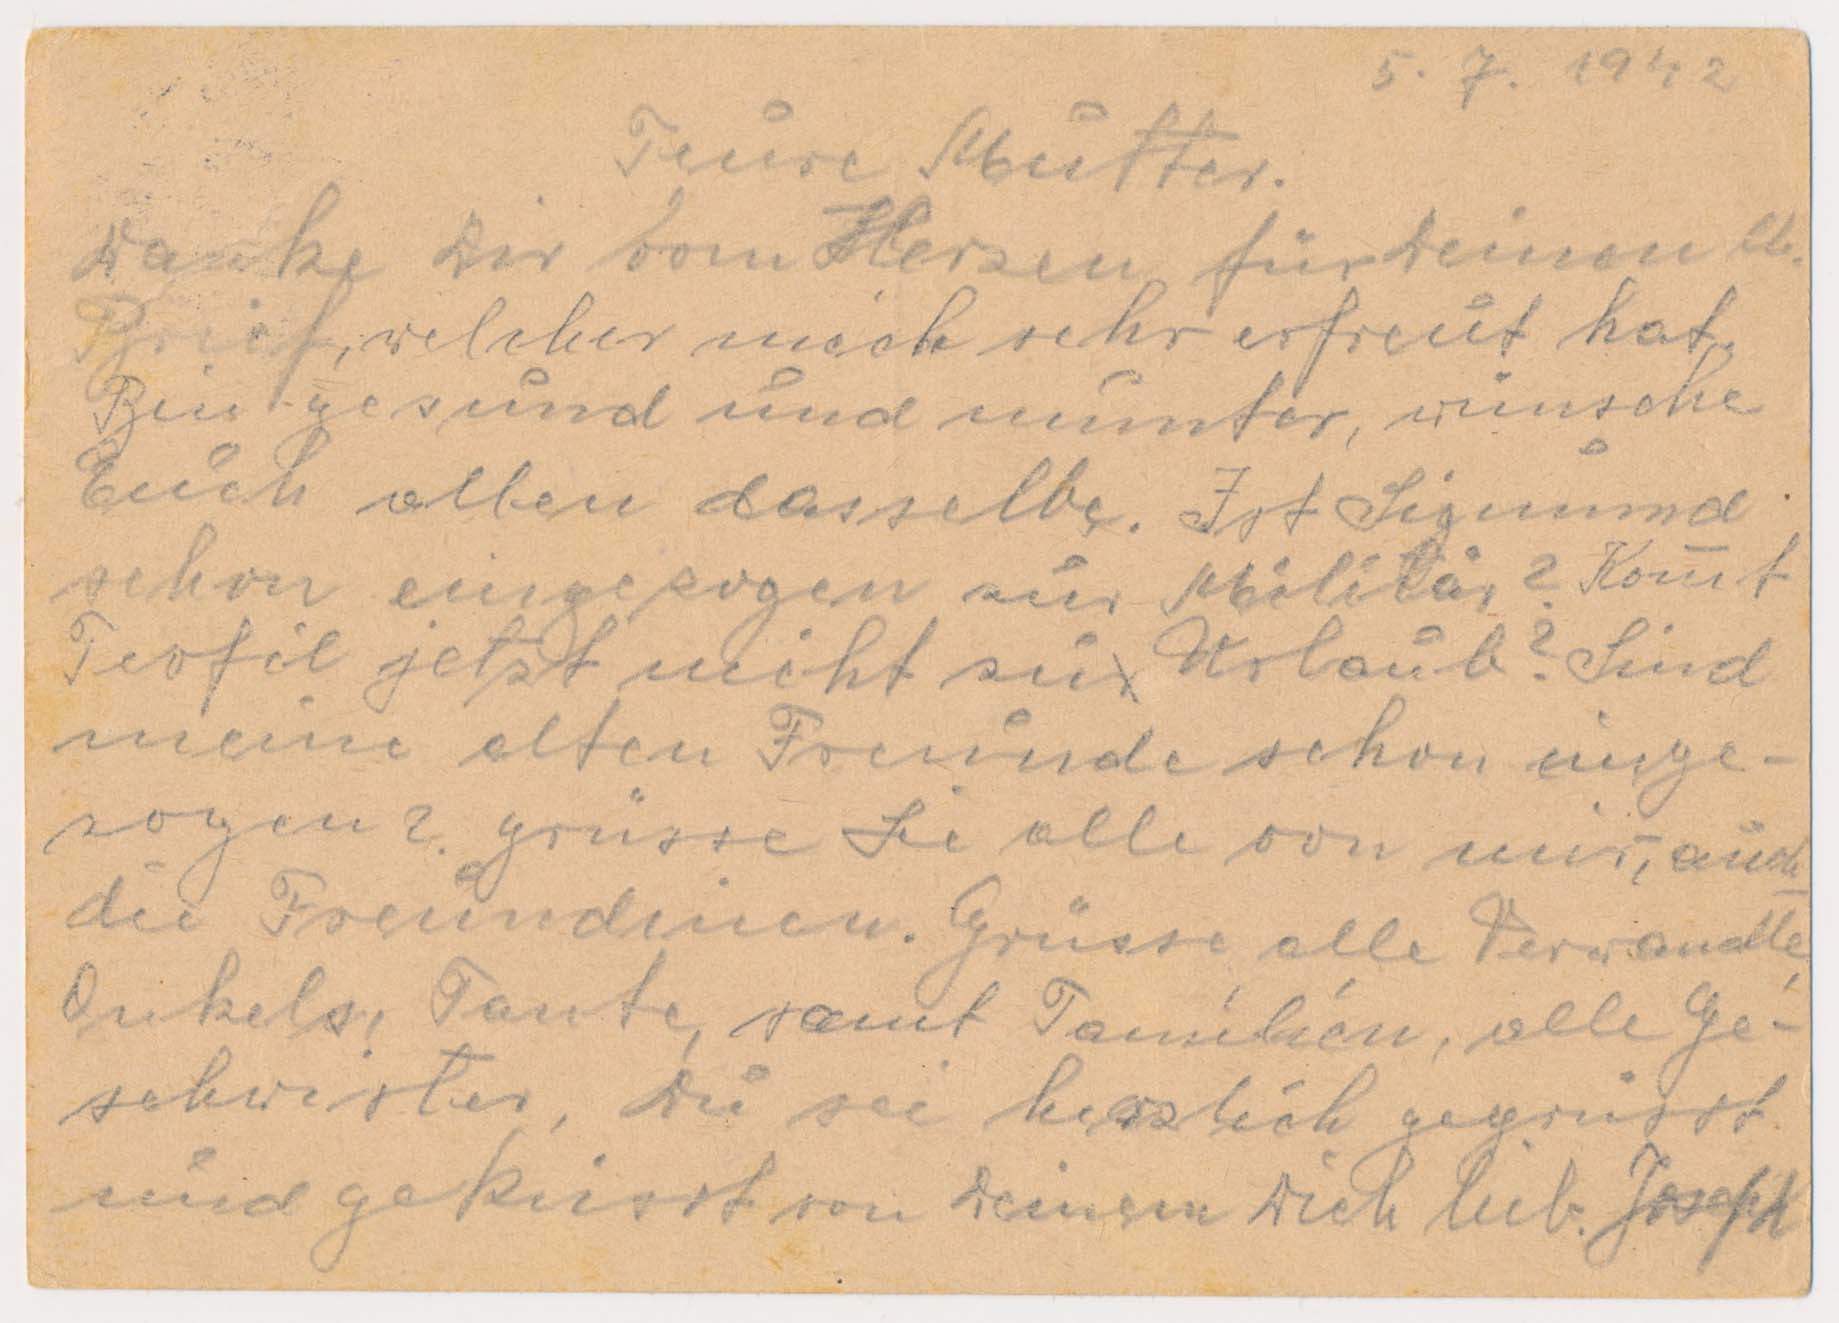 5. 7. 1942
Teure Mutter.
Danke Dir vom Herzen für Deinen lb.
Brief, welcher mich sehr erfreut hat.
Bin gesund und munter, wünsche
Euch allen dasselbe. Ist Sigmund
schon eingezogen zur Militär? Kom̅t
Teofil jetzt nicht zu Urlaub? Sind
meine alten Freunde schon einge-
zogen? grüsse Sie alle von mir, auch
die Freundinen. Grüsse alle Verwandte,
Onkels, Tante, samt Familien, alle Ge-
schwister, Du sei herzlich gegrüsst
und geküsst von Deinem Dich lieb. Joseph